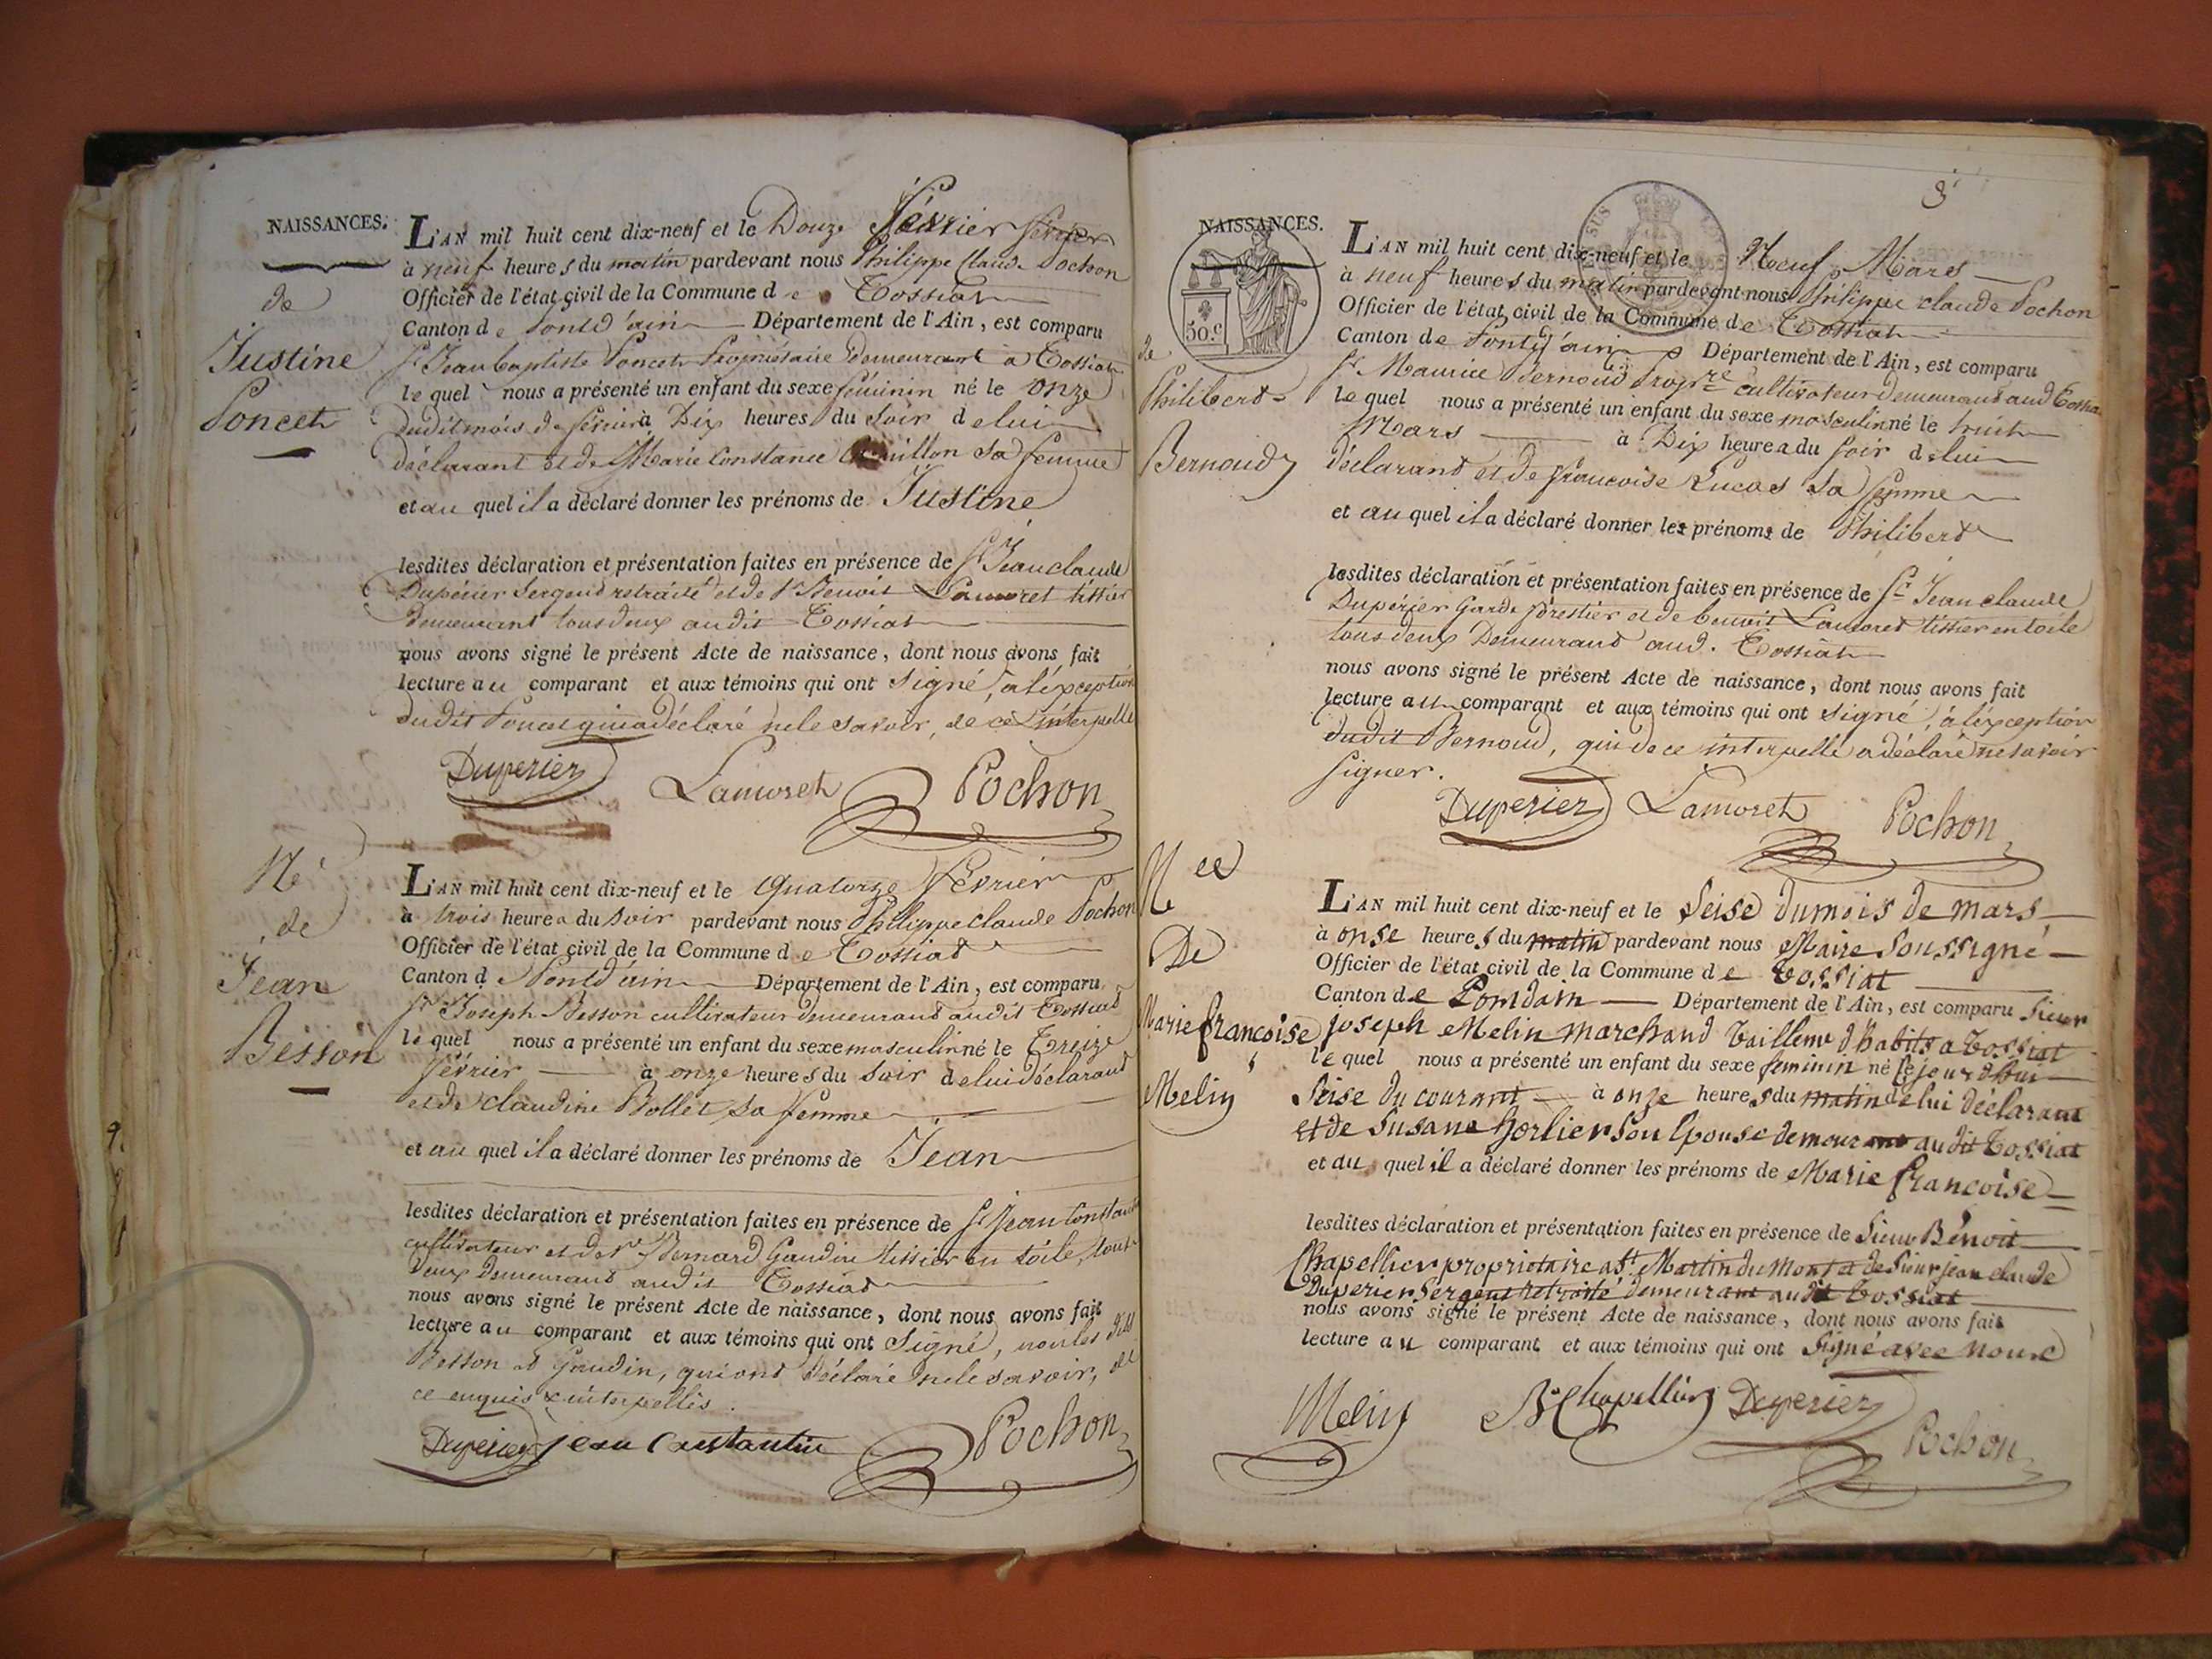 NAISSANCES.
de
Justine
Poncet
L'AN mil huit cent dix-neuf et le Douze février
à neuf heures du matin pardevant nous Philippe Claude Pochon
Officier de l'état civil de la Commune de Tossiat
Canton de Pontd'ain Département de l'Ain, est comparu
Sr Jean baptiste Poncet Propriétaire Demeurant à Tossiat
lequel nous a présenté un enfant du sexe féminin né le onze
dudit mois de février à Dix heures du soir de lui
déclarant et de Marie Constance sa femme
et au quel il a déclaré donner les prénoms de Justine
lesdites déclaration et présentation faites en présence de Sr Jean claude
Dupérier Sergent retraité et de Sr Benoit Lamoret tissier
demeurant tous deux audit Tossiat
nous avons signé le présent Acte de naissance, dont nous avons fait
lecture au comparant et aux témoins qui ont signé, à l'éxception
dudit Poncet qui a déclaré ne le savoir, de ce interpellé
Duperier Lamoret Pochon
Né
de
Jean
Besson
L'AN mil huit cent dix-neuf et le Quatorze février
à trois heures du soir pardevant nous Philippe claude Pochon
Officier de l'état civil de la Commune de Tossiat
Canton de Pontd'ain Département de l'Ain, est comparu
Sr Joseph Besson cultivateur demeurant audit Tossiat
lequel nous a présenté un enfant du sexe masculin né le Treize
février à onze heures du soir de lui déclarant
et de claudine Bollet sa femme
et au quel il a déclaré donner les prénoms de Jean
lesdites déclaration et présentation faites en présence de Sr Jean Constantin
cultivateur et de Sr Bernard Gaudin tissier en toile, tout
deux demeurant audit Tossiat
nous avons signé le présent Acte de naissance, dont nous avons fait
lecture au comparant et aux témoins qui ont Signé, non les dits
Besson et Gaudin, qui ont déclaré ne le savoir, de
ce enquis & interpellés.
Duperier jean Constantin Pochon
3
NAISSANCES.
50.c
de
Philibert
Bernoud
L'AN mil huit cent dix-neuf et le Neuf Mars
à neuf heures du matin pardevant nous Philippe claude Pochon
Officier de l'état civil de la Commune de Tossiat
Canton de Pontd'ain Département de l'Ain, est comparu
Sr Maurice Bernoud Propre cultivateur demeurant aud Tossiat
lequel nous a présenté un enfant du sexe masculin né le huit
Mars à Dix heures du soir de lui
déclarant et de françoise Lucas sa femme
et au quel il a déclaré donner les prénoms de Philibert
lesdites déclaration et présentation faites en présence de Sr Jean claude
Dupérier Garde forestier et de benoit Lamoret tissier en toile
tous deux Demeurant aud. Tossiat
nous avons signé le présent Acte de naissance, dont nous avons fait
lecture au comparant et aux témoins qui ont signé, à l'éxception
dudit Bernoud, qui de ce interpellé a déclaré ne savoir
signer.
Duperier Lamoret Pochon
Née
De
Marie françoise
Melin
L'AN mil huit cent dix-neuf et le Seise du mois de mars
à onse heures du matin pardevant nous Maire Soussigné
Officier de l'état civil de la Commune de Tossiat
Canton de Pontdain Département de l'Ain, est comparu Sieur
joseph Melin marchand tailleur d'habits a Tossiat
lequel nous a présenté un enfant du sexe feminin né le jourdhui
Seise du courant à onze heures du matin de lui déclarant
et de Susane Gorlier Son Epouse demeurant audit Tossiat
et au quel il a déclaré donner les prénoms de Marie françoise
lesdites déclaration et présentation faites en présence de Sieur Bénoit
Chapellier propriétaire a St Martin du mont et de Sieur jean claude
Duperier Sergent retraité demeurant audit Tossiat
nous avons signé le présent Acte de naissance, dont nous avons fait
lecture au comparant et aux témoins qui ont Signé avec nous
Melin B Chapellier Duperier
Pochon